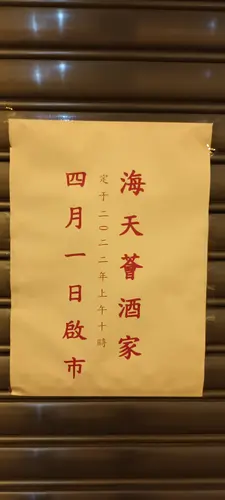 海天薈酒家
定于二〇二二年上午十時
四月一日啟市